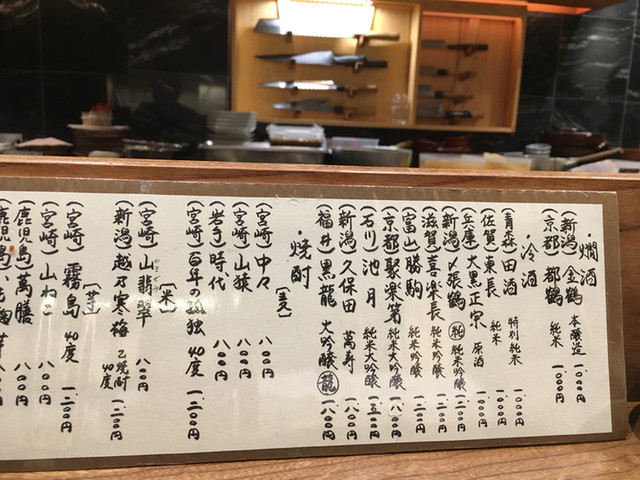 ・燗酒
(新潟) 金鶴 本醸造 一.〇〇〇円
(京都) 都鶴 純米 一.〇〇〇円
・冷酒
(青森) 田酒 特別純米 一.〇〇〇円
(佐賀) 東長 純米 一.〇〇〇円
(兵庫) 大黒正宗 原酒 一.〇〇〇円
(新潟) 〆張鶴 ㊋純米吟醸 一.二〇〇円
(滋賀) 喜楽長 純米吟醸 一.二〇〇円
(富山) 勝駒 純米吟醸 一.二〇〇円
(京都) 聚楽第 純米大吟醸 一.八〇〇円
(石川) 池月 純米大吟醸 一.五〇〇円
(新潟) 久保田 萬寿 一.八〇〇円
(福井) 黒龍 大吟醸 龍 一.八〇〇円
・焼酎
[麦]
(宮崎) 中々 八〇〇円
(宮崎) 山猿 八〇〇円
(岩手) 時代 八〇〇円
(宮崎) 百年の孤独 40度 一.二〇〇円
[米]
(宮崎) 山翡翠 八〇〇円
(新潟) 越乃寒梅 乙焼酎 40度 一.二〇〇円
[芋]
(宮崎) 霧島 40度 一.二〇〇円
(宮崎) 山ねこ 八〇〇円
(鹿児島) 萬膳 八〇〇円
(鹿児島)